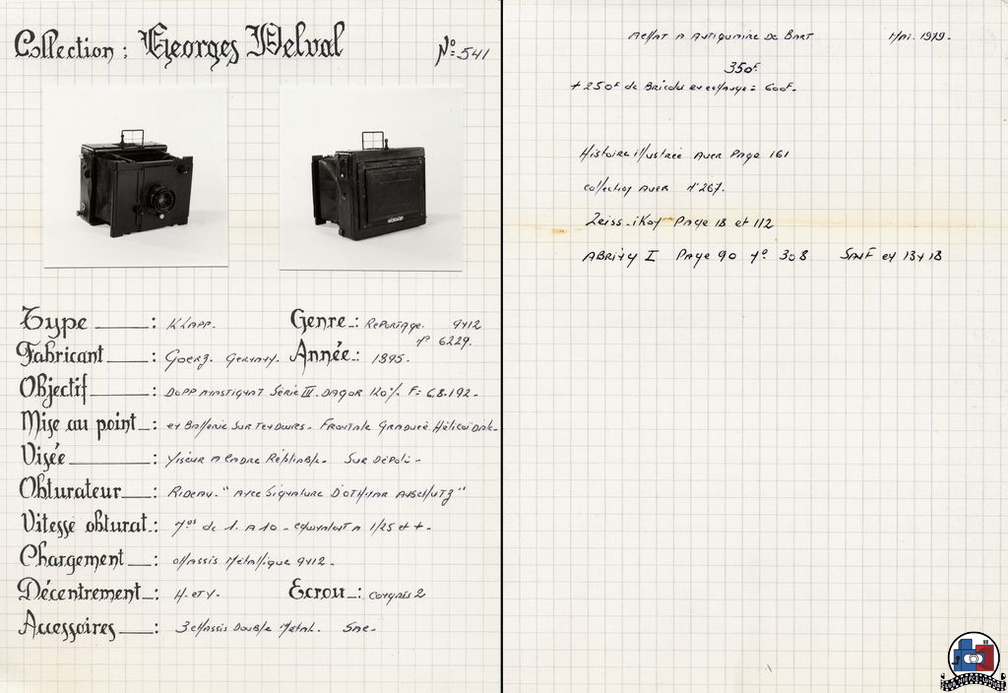 Collection : Georges Delval N° 541
Type : Klapp.
Genre : Reportage. 9x12
n° 6229.
Fabricant : Goerz. Germany.
Année : 1895.
Objectif : Dopp anastigmat Série III. Dagor 120% F: 6.8.192.
Mise au point : en Batterie sur Tendeurs. Frontale Graduée Hélicoïdale.
Visée : Viseur a Cadre Repliable. Sur Dépoli.
Obturateur : Rideau. " avec signature D'Othmar Anschutz "
Vitesse obturat. : Nos de 1. A 10 - equivalent a 1/25 et + -
Chargement : chassis métallique 9x12.
Décentrement : H. et V.
Ecrou : congrès 2
Accessoires : 3 chassis Double métal. Sac.
Achat a Antiquaire de 1 Mai. 1979.
350F.
+ 250F de Bricoles en echange = 600F.
Histoire illustrée Auer Page 161
collection Auer N° 267.
Zeiss-ikon Page 18 et 112
ABring I Page 90 N° 308 Sauf en 13x18